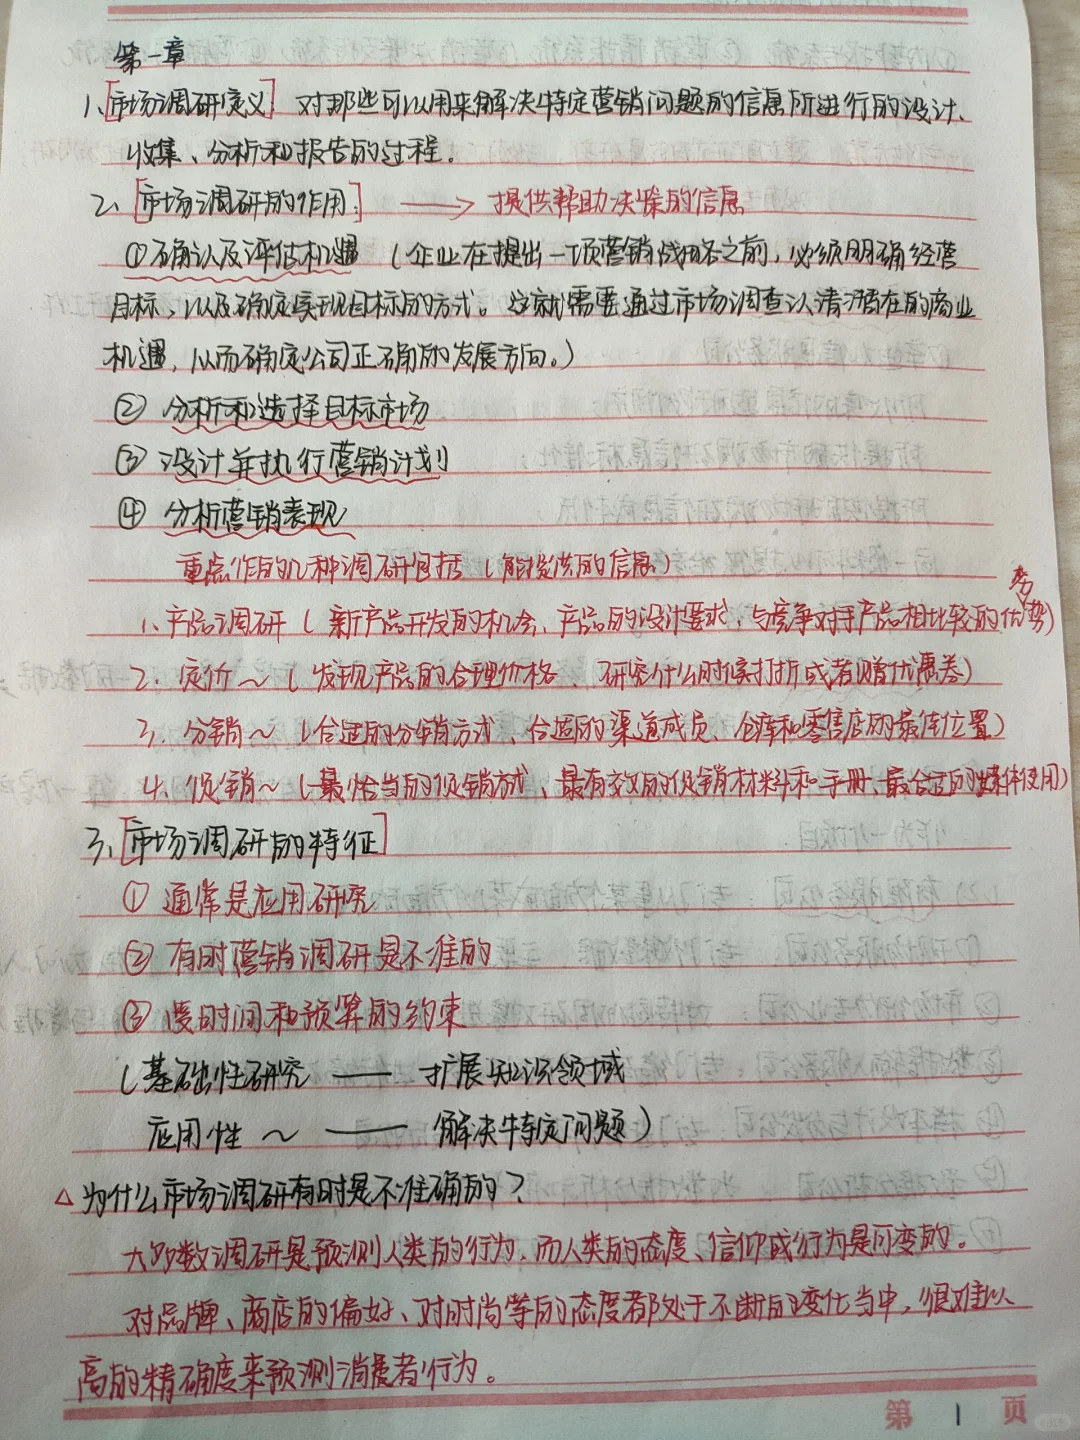 第一章
1、[市场调研定义] 对那些可以用来解决特定营销问题的信息所进行的设计、
收集、分析和报告的过程。
2、[市场调研的作用:] ——> 提供帮助决策的信息
①确认及评估机遇 (企业在提出一项营销战略之前,必须明确经营
目标,以及确定实现目标的方式。这就需要通过市场调查认清潜在的商业
机遇,从而确定公司正确的发展方向。)
② 分析和选择目标市场
③ 设计并执行营销计划
④ 分析营销表现
重点作的几种调研包括 (能提供的信息)
1、产品调研 ( 新产品开发的机会、产品的设计要求、与竞争对手产品相比较的优势)
2. 定价~ ( 发现产品的合理价格、研究什么时候打折或者赠优惠券)
3. 分销~ (合适的分销方式、合适的渠道成员、仓库和零售店的最佳位置)
4. 促销~ (最恰当的促销方式、最有效的促销材料和手册、最合适的媒体使用)
3、[市场调研的特征]
① 通常是应用研究
② 有时营销调研是不准的
③ 受时间和预算的约束
(基础性研究 —— 扩展知识领域
应用性 ~ —— 解决特定问题)
△为什么市场调研有时是不准确的?
大多数调研是预测人类的行为,而人类的态度、信仰或行为是可变的。
对品牌、商店的偏好、对时尚等的态度都处于不断的变化当中,很难以
高的精确度来预测消费者行为。
第 1 页